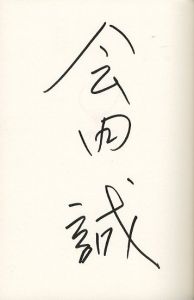 会田
誠